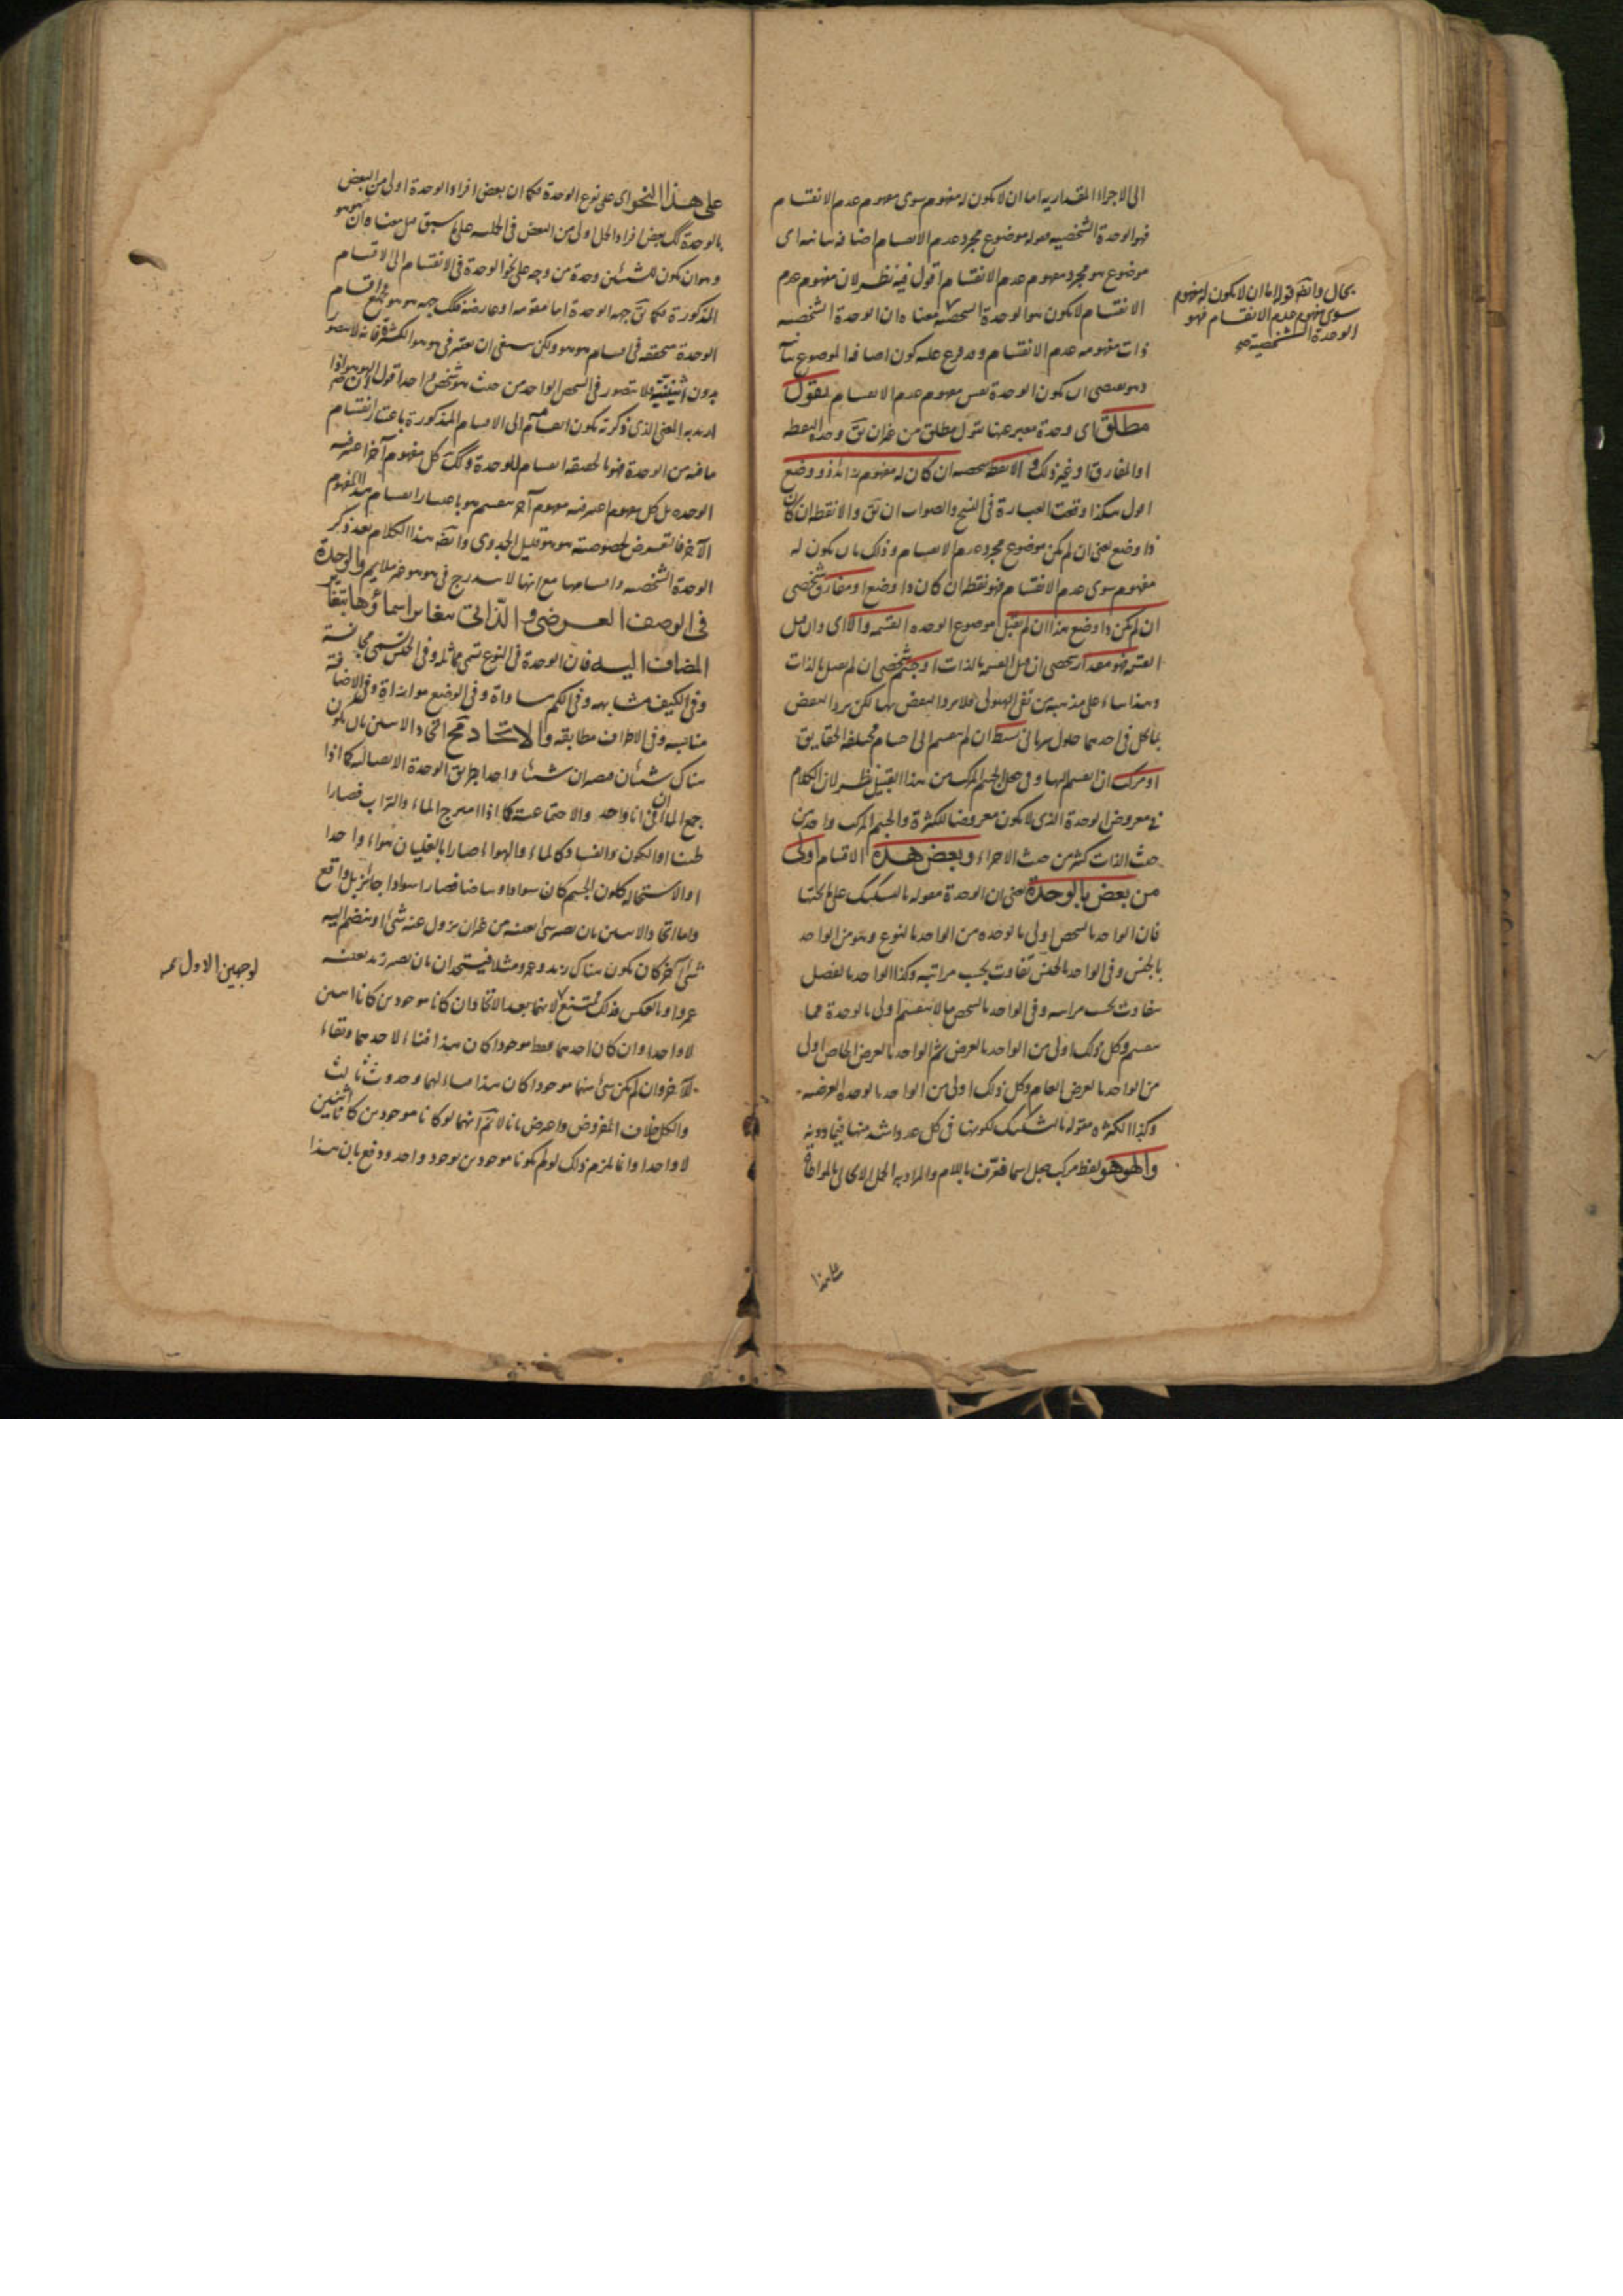 الى الاجزاء المقدارية اما ان لا يكون له مفهوم سوى مفهوم عدم الانقسام
فهو الوحدة الشخصيه فقوله موضوع مجرد عدم الانقسام اضافة بيانيه اى
موضوع هو مجرد مفهوم عدم الانقسام اقول فيه نظر لان مفهوم عدم
الانقسام لا يكون هو الوحدة الشخصيه معناه ان الوحدة الشخصيه
ذات مفهومه عدم الانقسام ومدفوع عليه كون اضافة الموضوع
وهو يقتضى ان يكون الوحدة نفس مفهوم عدم الانقسام بقول
مطلق اى وحدة معبر عنها بقول مطلق من غير ان يق وحدة النقطه
او المفارق او غير ذلك والا نقطه شخصيه ان كان له مفهوم زائد ذو وضع
اقول هكذا وقعت العبارة فى النسخ والصواب ان يق والا نقطه ان كان
ذا وضع يعنى ان لم يكن موضوع مجرد عدم الانقسام وذلك بان يكون له
مفهوم سوى عدم الانقسام فهو نقطه ان كان ذا وضع او مفارق شخصى
ان لم يكن ذا وضع هذا ان لم يقبل موضوع الوحده القسمه والا اى وان قبل
القسمه فهو مقدار شخصى ان قبل القسمه بالذات او جسم شخصى ان لم يقبل بالذات
وهذا بناء على مذهبه من نفى الهيولى فلا يرد النقض بها لكن يرد النقض
بما يحل فى احدهما حلول سريانى بسيط ان لم ينقسم الى اجسام مختلفه الحقايق
او مركب ان انقسم اليها وفى جعل الجسم المركب من هذا القبيل نظر لان الكلام
فى معروض الوحدة الذى لا يكون معروضا للكثرة والجسم المركب واحد من
حيث الذات كثير من حيث الاجزاء وبعض هذه الاقسام اولى
من بعض بالوحدة يعنى ان الوحدة مقوله بالتشكيك على ما تحتها
فان الواحد بالشخص اولى بالوحده من الواحد بالنوع وهو من الواحد
بالجنس وفى الواحد بالجنس تفاوت بحسب مراتبه وكذا الواحد بالفصل
يتفاوت بحسب مراتبه وفى الواحد بالشخص ما لا ينقسم اولى بالوحدة مما
ينقسم وكل ذلك اولى من الواحد بالعرض ثم الواحد بالعرض الخاص اولى
من الواحد بالعرض العام وكل ذلك اولى من الواحد بالوحده العرضيه
وكذا الكثره مقوله بالتشكيك لكونها فى كل عدد اشد منها فيما دونه
والهوهو لفظ مركب جعل اسما فعرف باللام والمراد به الحمل الايجابى بالمواطاة
بحال وايضا قوله اما ان لا يكون له مفهوم
سوى مفهوم عدم الانقسام فهو
الوحدة الشخصية صح
على هذا النحو اى على نوع الوحدة فكما ان بعض افراد الوحدة اولى من البعض
بالوحدة كك بعض افراد الحمل اولى من البعض فى الحمليه على ما سبق من معناه ان هوهو
وهو ان يكون للشيئين وحدة من وجه على نحو الوحدة فى الانقسام الى الاقسام
المذكورة فكما يق جهه الوحدة اما مقومه او عارضه فكك جهه هوهو فجميع اقسام
الوحدة متحققه فى اقسام هوهو ولكن ينبغى ان يعتبر فى هوهو الكثرة فانه لا يتصور
بدون اثنينية فلا يتصور فى الشخص الواحد من حيث هو شخص واحد اقول الهوهو اذا
اريد به المعنى الذى ذكرته يكون انقسامه الى الاقسام المذكورة باعتبار انقسام
ما فيه من الوحدة فهو بالحقيقه انقسام للوحدة وكك كل مفهوم آخر اعتبر فيه
الوحده بل كل مفهوم اعتبر فيه مفهوم آخر ينقسم هو باعتبار انقسام هذا المفهوم
الآخر فالتعرض لخصوصيته هوهو قليل الجدوى وايضا هذا الكلام بعد ذكر
الوحدة الشخصيه واقسامها مع انها لا تندرج فى هوهو غير ملايم والوحدة
فى الوصف العرضى والذاتى يتغاير اسماؤها بتغاير
المضاف اليه فان الوحدة فى النوع تسمى مماثلة وفى الجنس تسمى مجانسة
وفى الكيف مشابهه وفى الكم مساواة وفى الوضع موازاة وفى الاضافة
مناسبه وفى الاطراف مطابقه والاتحاد مح اتحاد الاثنين بان يكون
هناك شيئان فصارا شيئا واحدا بطريق الوحدة الاتصاليه كما اذا
جمع الماآن فى اناء واحد والاجتماعية كما اذا امتزج الماء والتراب فصارا
طينا او الكون والفساد كالماء والهواء صارا بالغليان هواء واحدا
او الاستحاله كلون الجسم كان سوادا وبياضا فصارا سوادا جائز بل واقع
واما اتحاد الاثنين بان يصير شئ بعينه من غير ان يزول عنه شئ او ينضم اليه
شئ آخر كان يكون هناك زيد وعمرو مثلا فيتحدان بان يصير زيد بعينه
عمروا وبالعكس فذلك ممتنع لانهما بعد الاتحاد ان كانا موجودين كانا اثنين
لا واحدا وان كان احدهما فقط موجودا كان هذا فناء لاحدهما وبقاء
للآخر وان لم يكن شئ منهما موجودا كان هذا فناء لهما وحدوث ثالث
والكل خلاف المفروض واعترض بانا لا نم انهما لو كانا موجودين كانا اثنين
لا واحدا وانما يلزم ذلك لو لم يكونا موجودين بوجود واحد ودفع بان هذا
لوجهين الاول